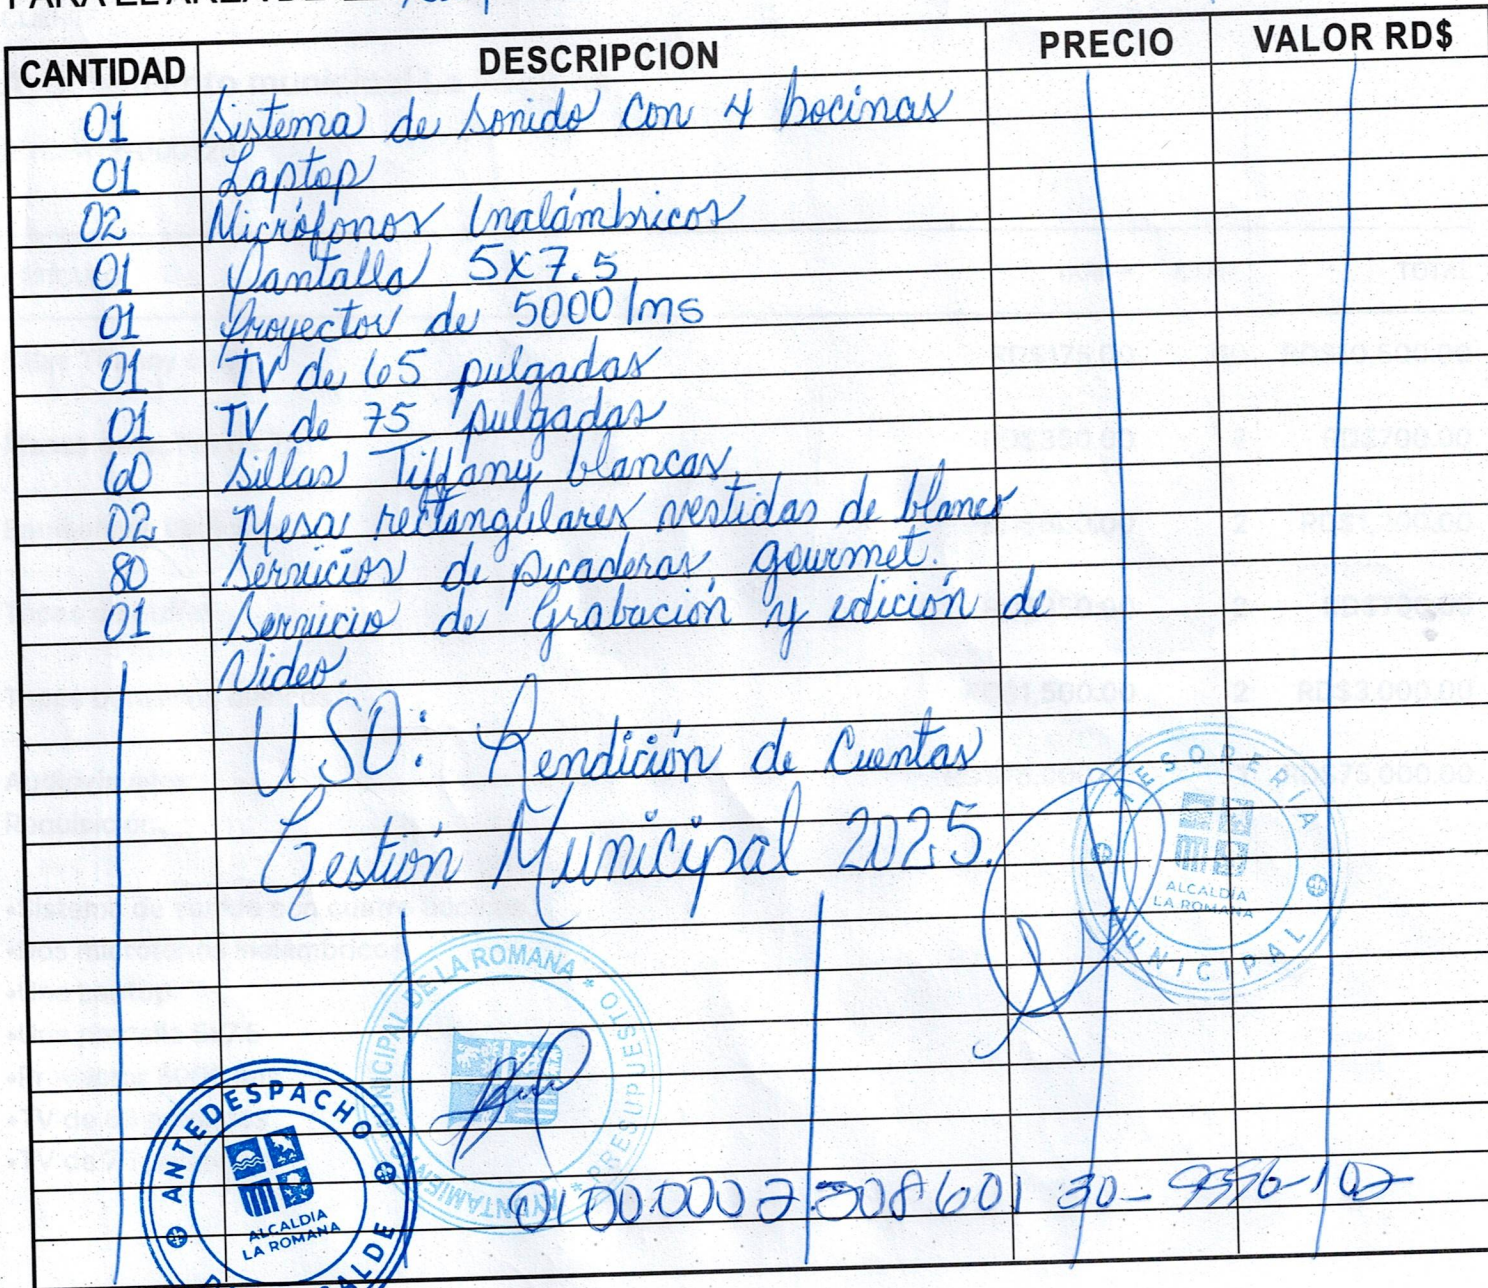 PARA EL AREA DE
CANTIDAD DESCRIPCION PRECIO VALOR RD$
01 Sistema de Sonido Con 4 bocinas
01 Laptop
02 Micrófonos Inalámbricos
01 Pantalla 5x7.5
01 Proyector de 5000 lms
01 TV de 65 pulgadas
01 TV de 75 pulgadas
60 Sillas Tiffany blancas.
02 Mesa rectangulares vestidas de blanco
80 Servicios de picaderas, gourmet.
01 Servicio de Grabación y edición de
Video.
USO: Rendición de Cuentas
Gestión Municipal 2025.
TESORERIA
ALCALDIA
LA ROMANA
MUNICIPAL
AYUNTAMIENTO MUNICIPAL DE LA ROMANA * PRESUPUESTO *
ANTEDESPACHO
ALCALDIA
LA ROMANA
ALCALDE